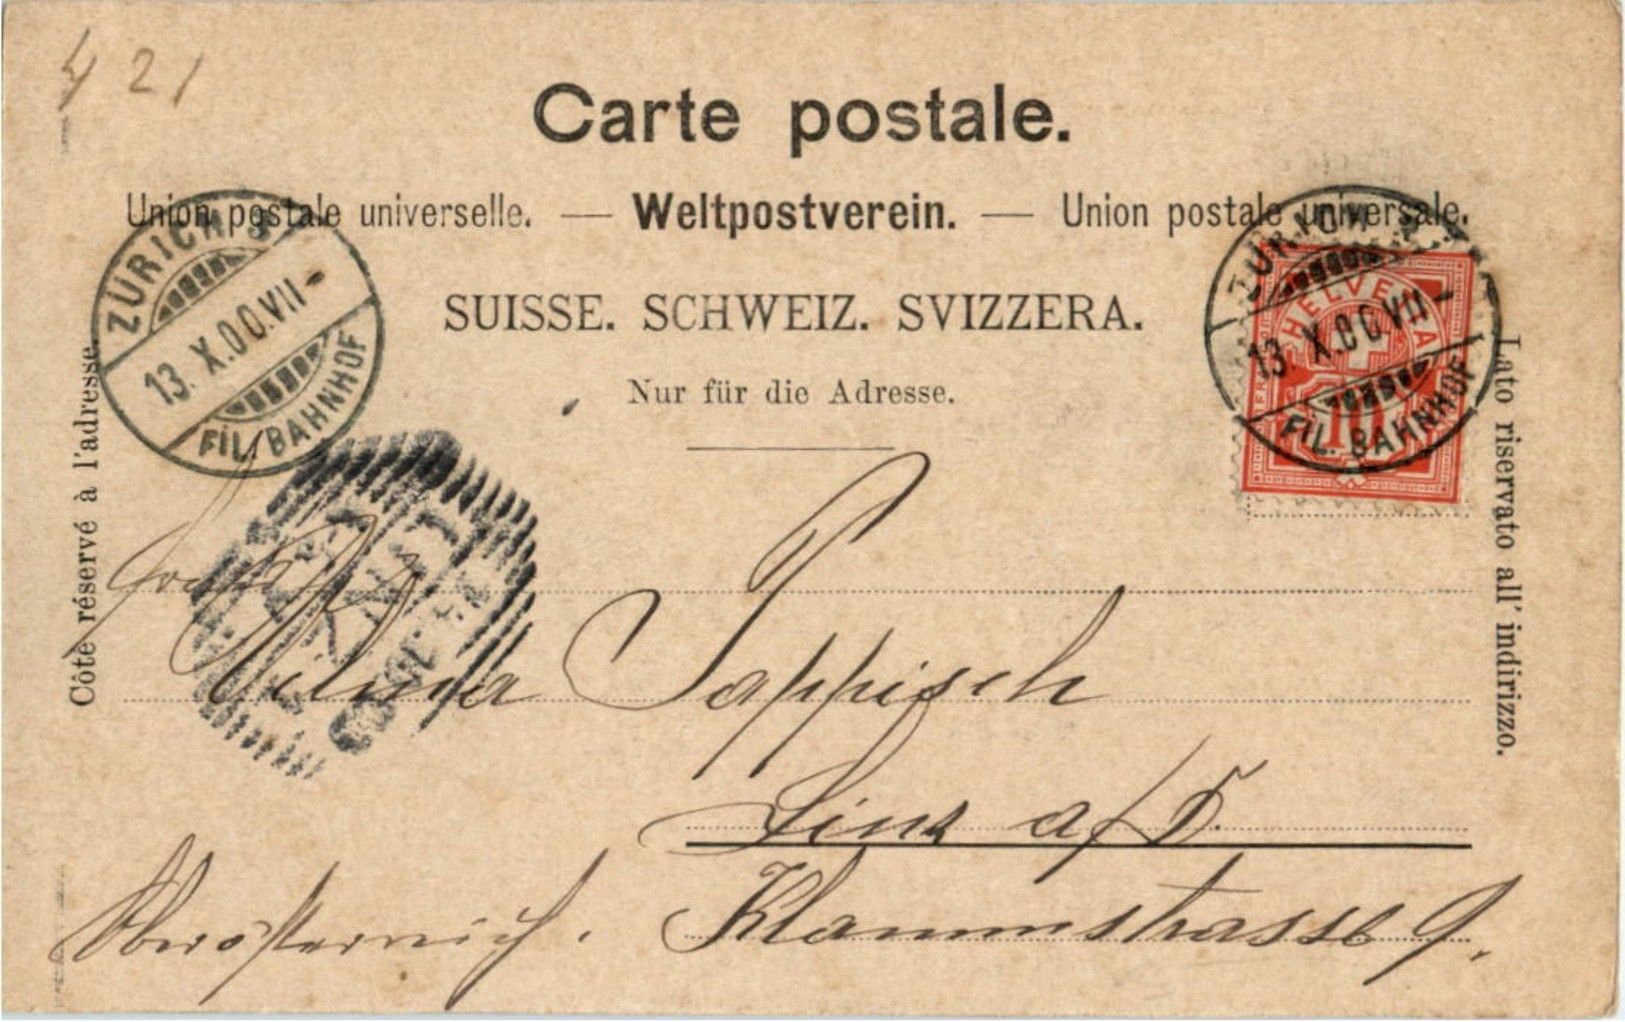 421
Carte postale.
Union postale universelle. — Weltpostverein. — Union postale universale.
SUISSE. SCHWEIZ. SVIZZERA.
Nur für die Adresse.
Côté réservé à l'adresse.
Lato riservato all' indirizzo.
ZÜRICH
13. X.00.VII-
FIL. BAHNHOF
ZÜRICH
13. X.00.VII-
FIL. BAHNHOF
HELVETIA
10
FR
Wilma Pappisch
Linz a/D.
Klammstrasse 9.
Oberösterreich.